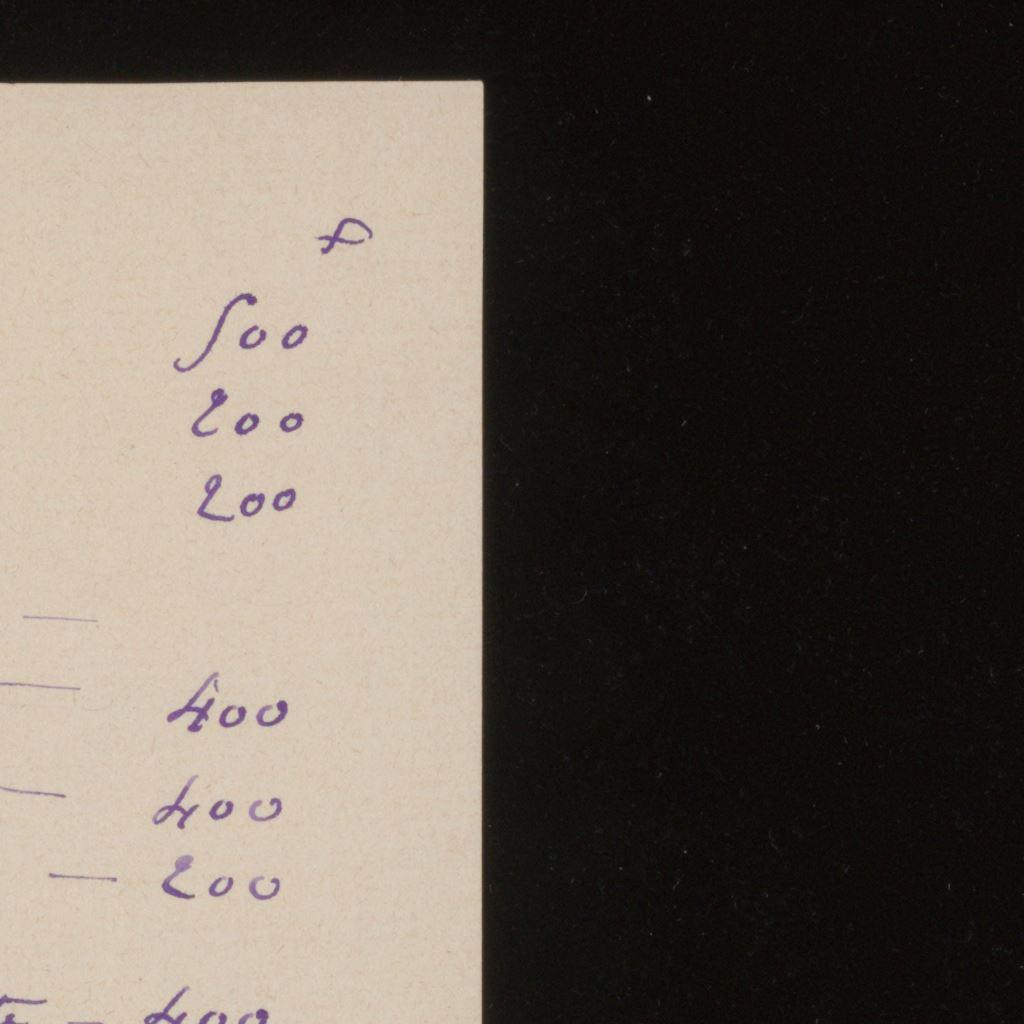 500
200
200
400
400
— 200
— 400